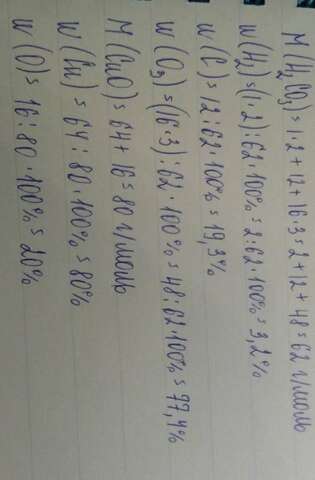 M(H₂CO₃) = 1·2+12+16·3=2+12+48=62 г/моль
W(H₂)=(1·2):62·100%=2:62·100%=3,2%
W(C)=12:62·100%=19,3%
W(O₃)=(16·3):62·100%=48:62·100%=77,4%
M(CuO)=64+16=80 г/моль
W(Cu)=64:80·100%=80%
W(O)=16:80·100%=20%